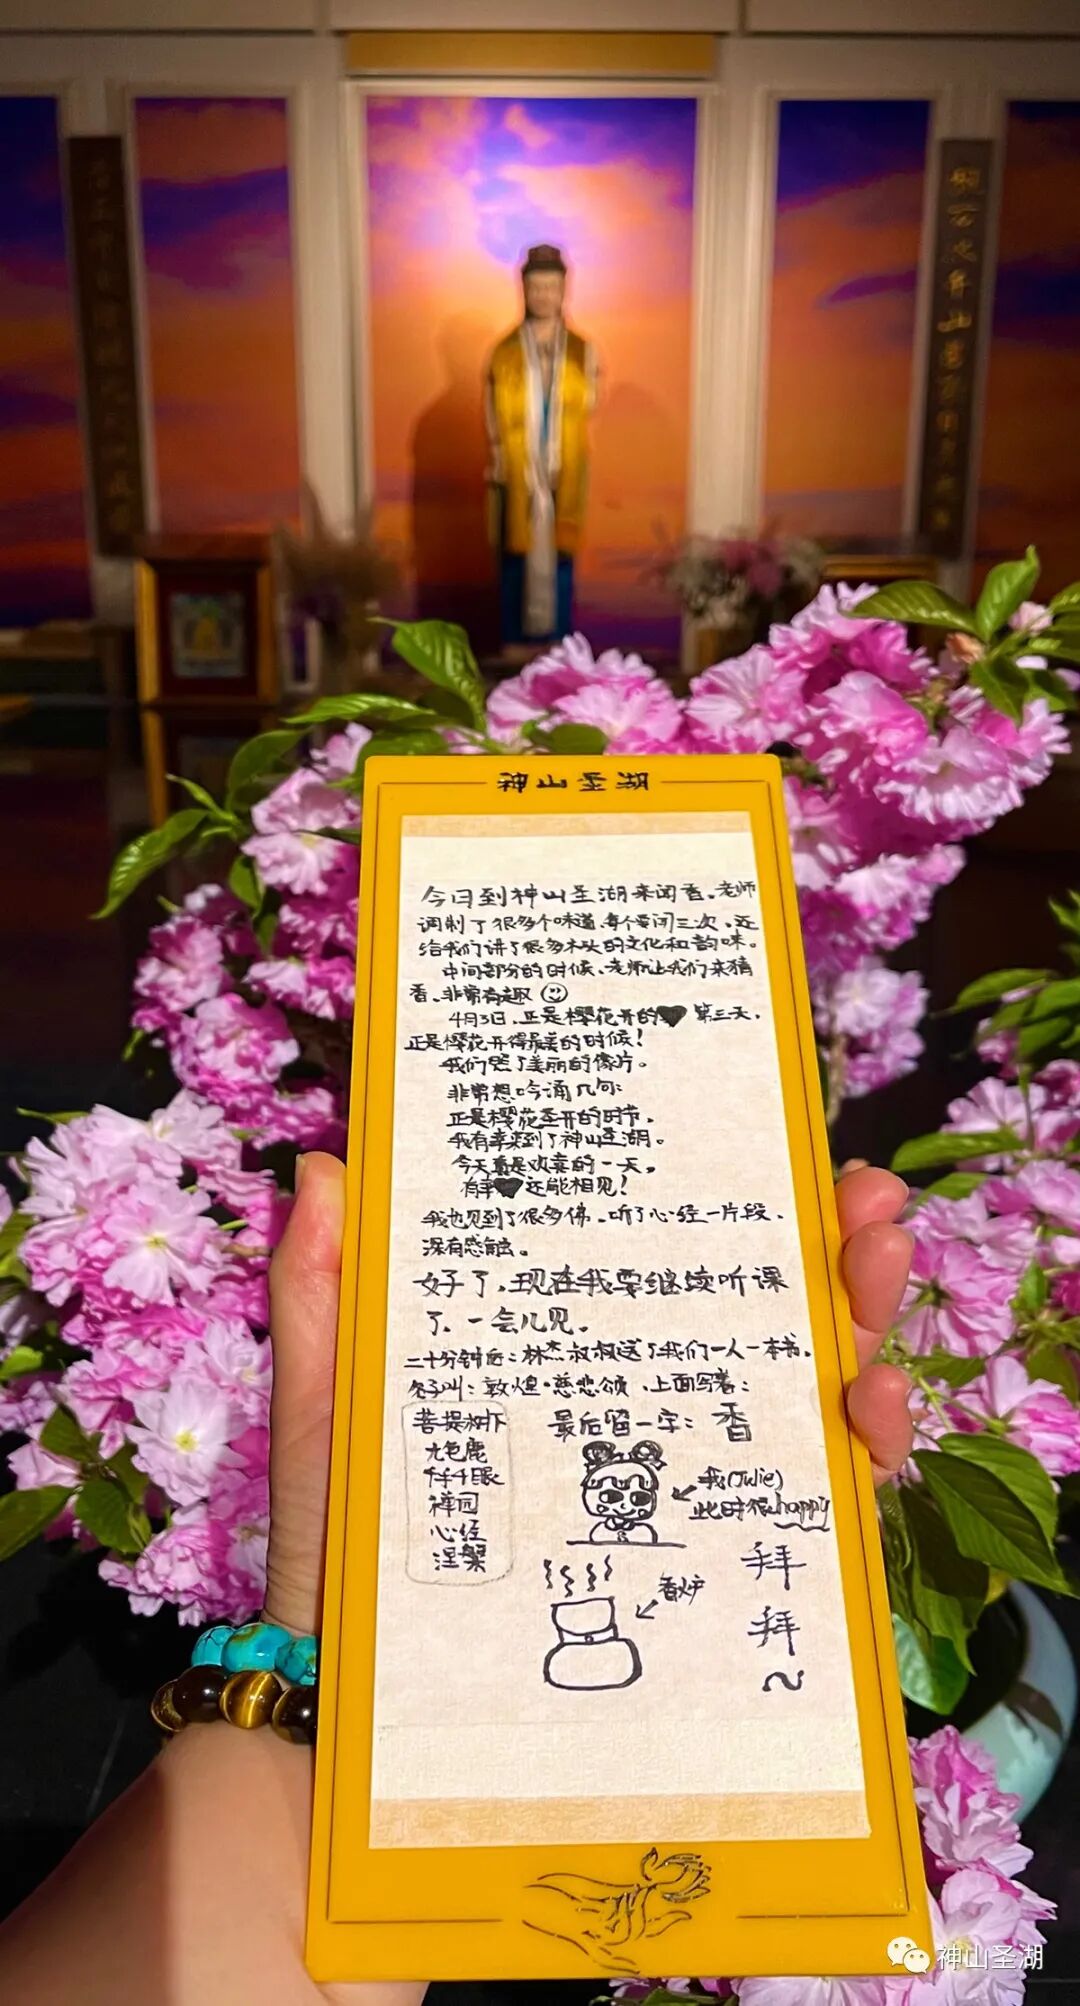 神山圣湖
今日到神山圣湖来闻香。老师
调制了很多个味道，每个要闻三次，还
给我们讲了很多木头的文化和韵味。
中间部分的时候，老师让我们来猜
香，非常有趣
4月3日，正是樱花开的第三天，
正是樱花开得最美的时候！
我们照了美丽的像片。
非常想吟诵几句：
正是樱花盛开的时节，
我有幸来到了神山圣湖。
今天真是欢喜的一天，
还能相见！
我也见到了很多佛，听了心经一片段，
深有感触。
好了，现在我要继续听课
了，一会儿见。
二十分钟后：林杰叔叔送了我们一人一本书，
名子叫：敦煌·慈悲颂，上面写着：
菩提树下
九色鹿
千手千眼
禅园
心经
涅槃
最后留一字：香
我(Julie)
此时很happy
香炉
拜
拜
~
神山圣湖